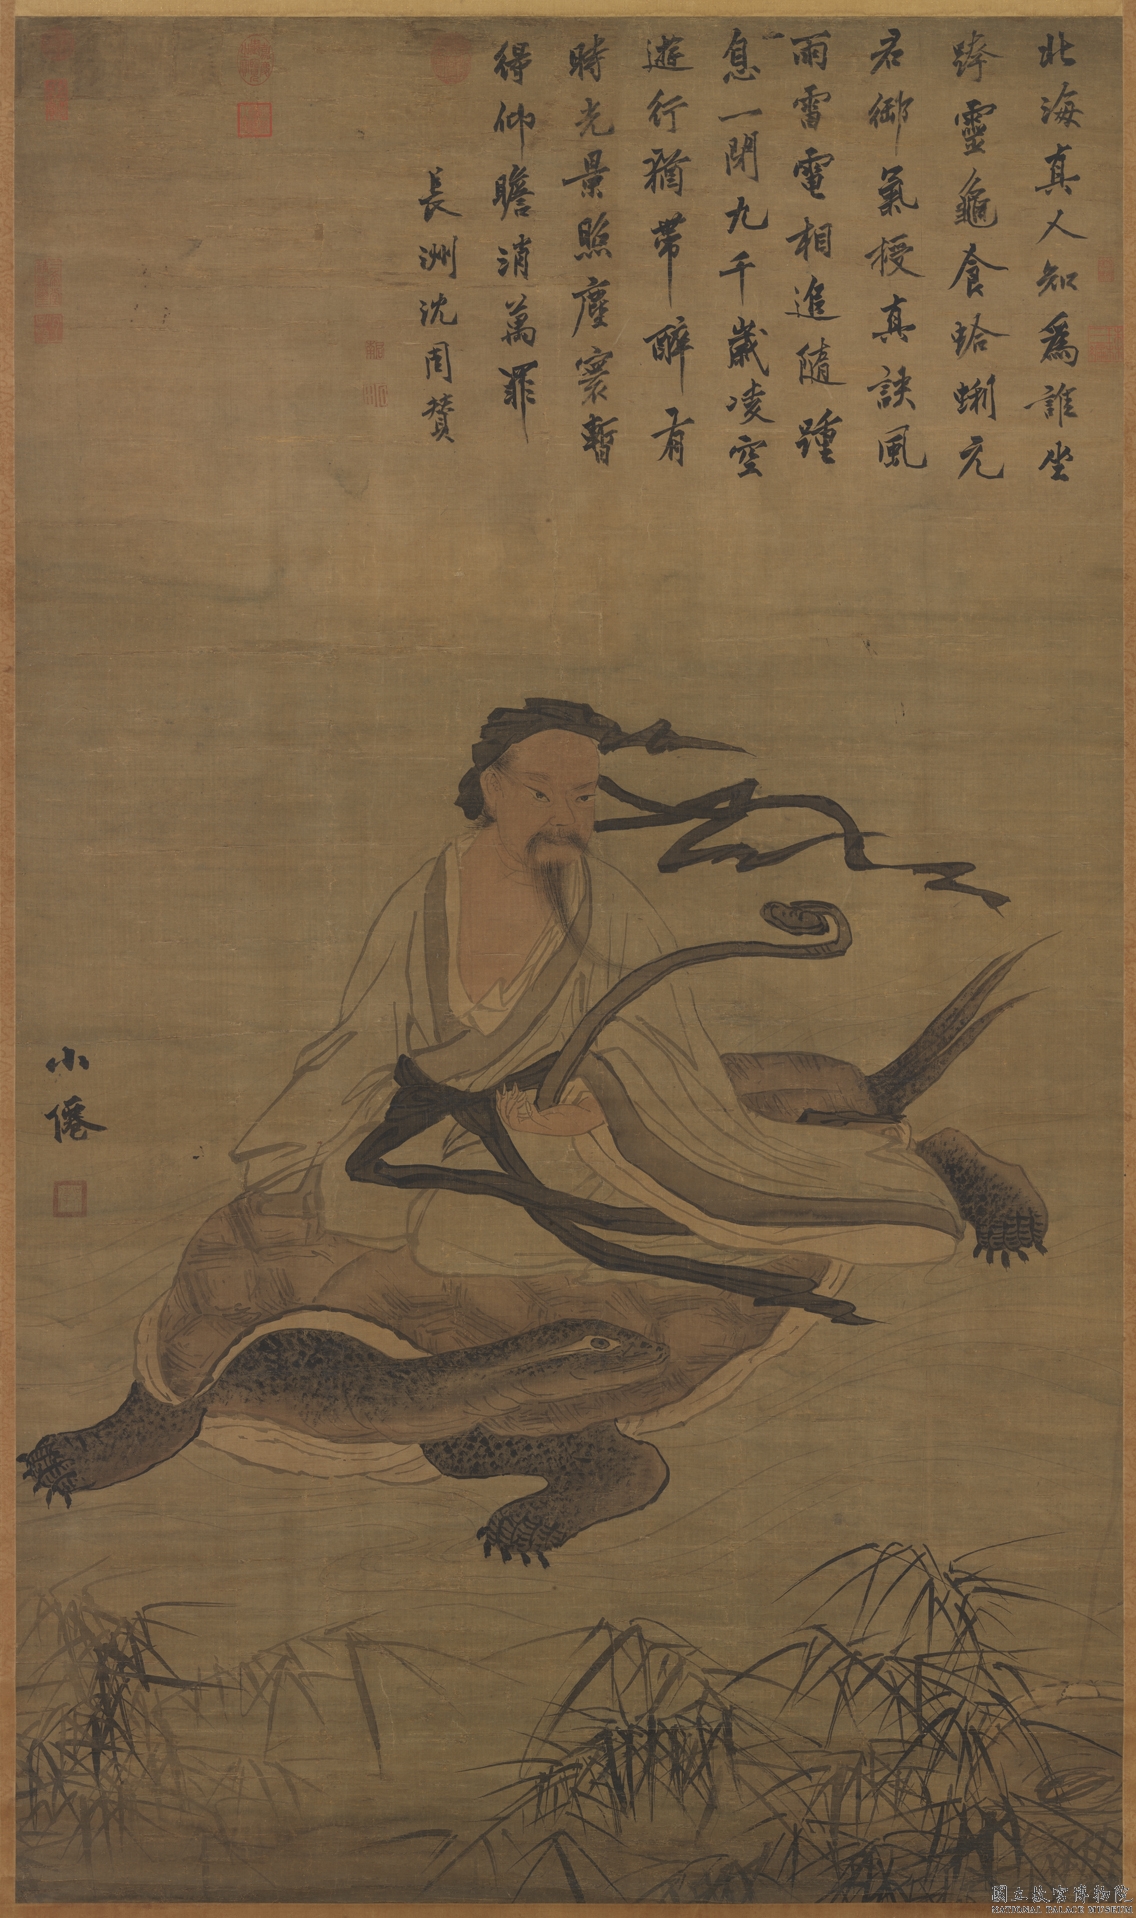 北海真人知爲誰坐
跨靈龜食蛤蜊元
君御氣授真訣風
雨雷電相追隨踵
息一閉九千歲凌空
遊行猶帶醉有
時光景照塵寰暫
得仰瞻消萬罪
長洲沈周贊
小僊
國立故宮博物院
NATIONAL PALACE MUSEUM